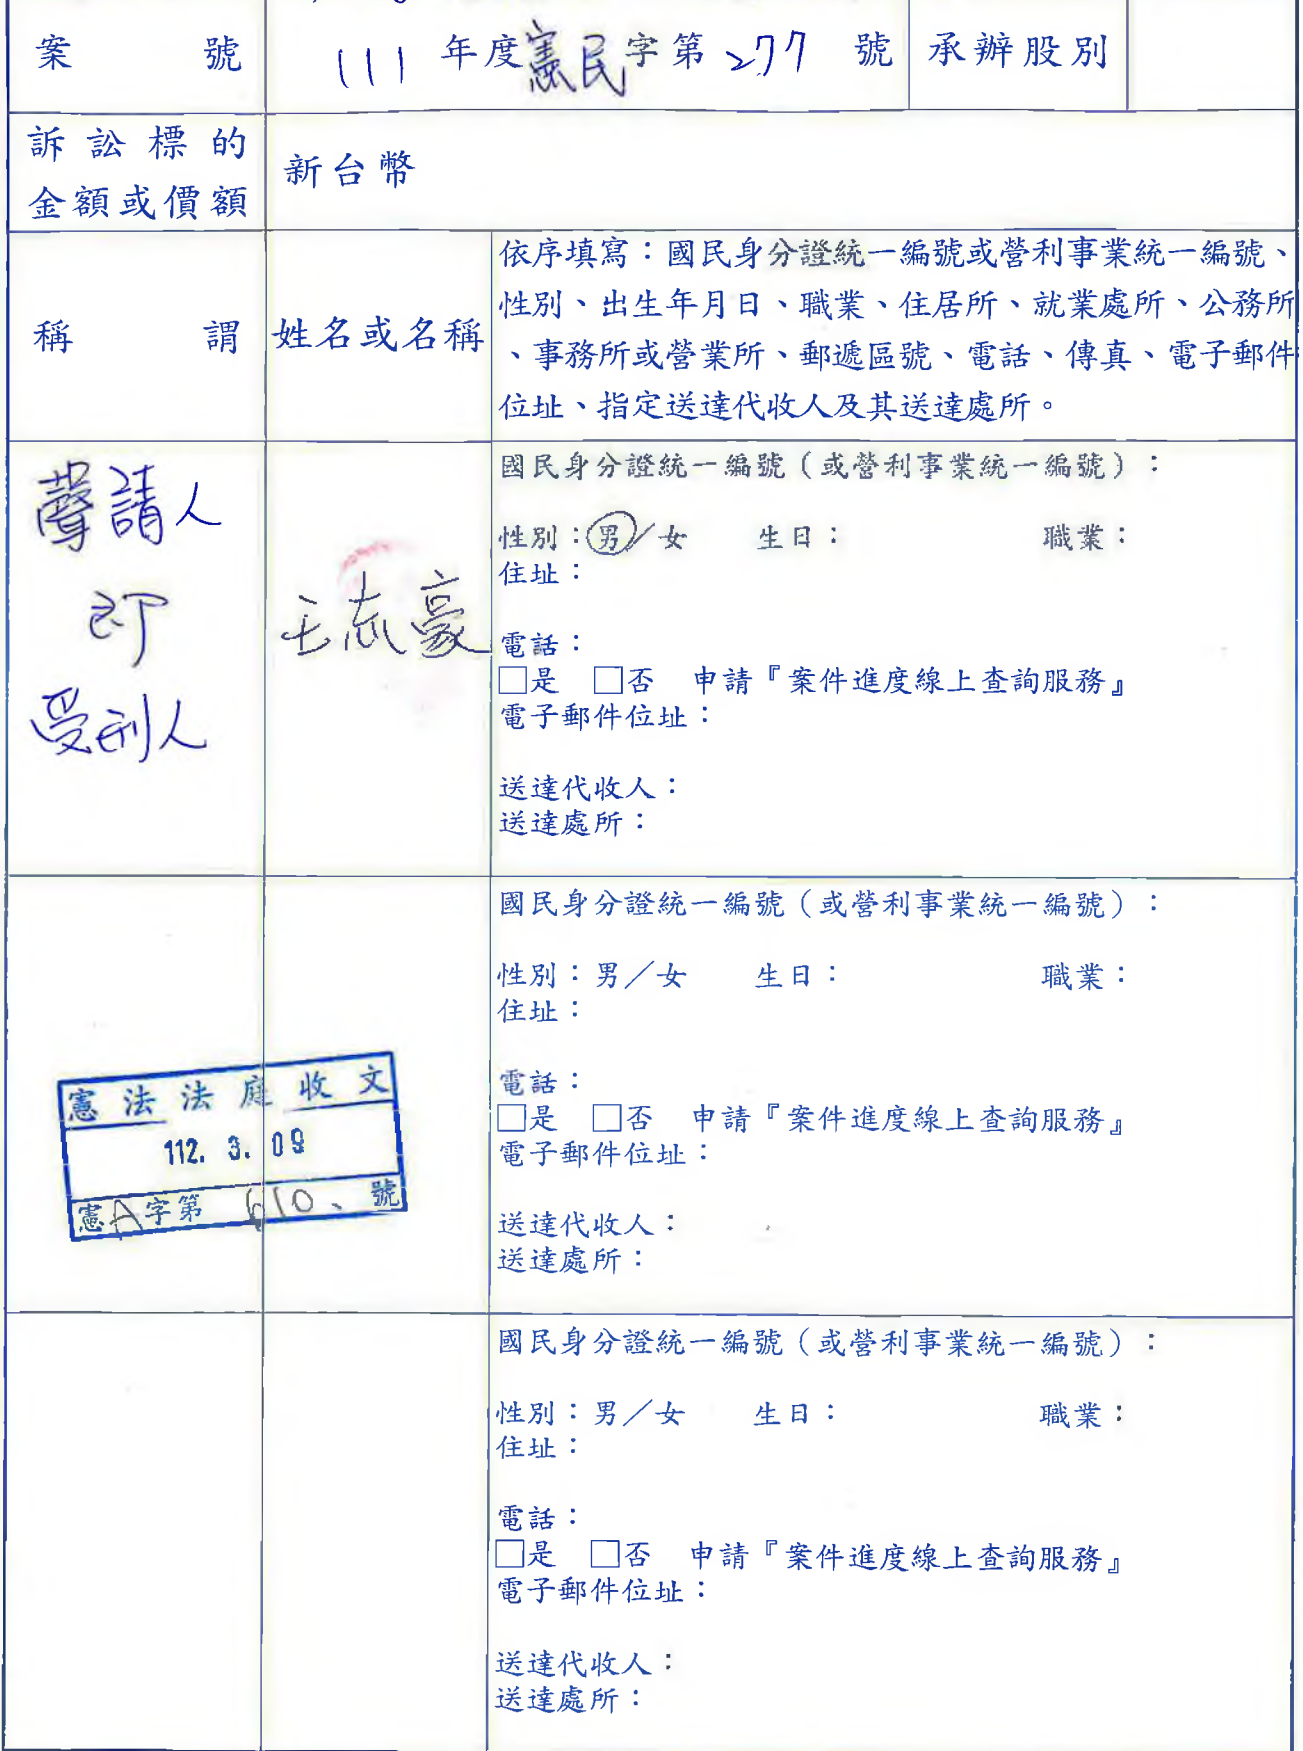 案號 111 年度憲民字第 277 號 承辦股別
訴訟標的
金額或價額
新台幣
稱謂
姓名或名稱
依序填寫：國民身分證統一編號或營利事業統一編號、
性別、出生年月日、職業、住居所、就業處所、公務所
、事務所或營業所、郵遞區號、電話、傳真、電子郵件
位址、指定送達代收人及其送達處所。
聲請人
即
受刑人
王志豪
國民身分證統一編號（或營利事業統一編號）：
性別：男／女 生日： 職業：
住址：
電話：
□是 □否 申請『案件進度線上查詢服務』
電子郵件位址：
送達代收人：
送達處所：
憲法法庭收文
112. 3. 09
憲A字第 610、號
國民身分證統一編號（或營利事業統一編號）：
性別：男／女 生日： 職業：
住址：
電話：
□是 □否 申請『案件進度線上查詢服務』
電子郵件位址：
送達代收人：
送達處所：
國民身分證統一編號（或營利事業統一編號）：
性別：男／女 生日： 職業：
住址：
電話：
□是 □否 申請『案件進度線上查詢服務』
電子郵件位址：
送達代收人：
送達處所：